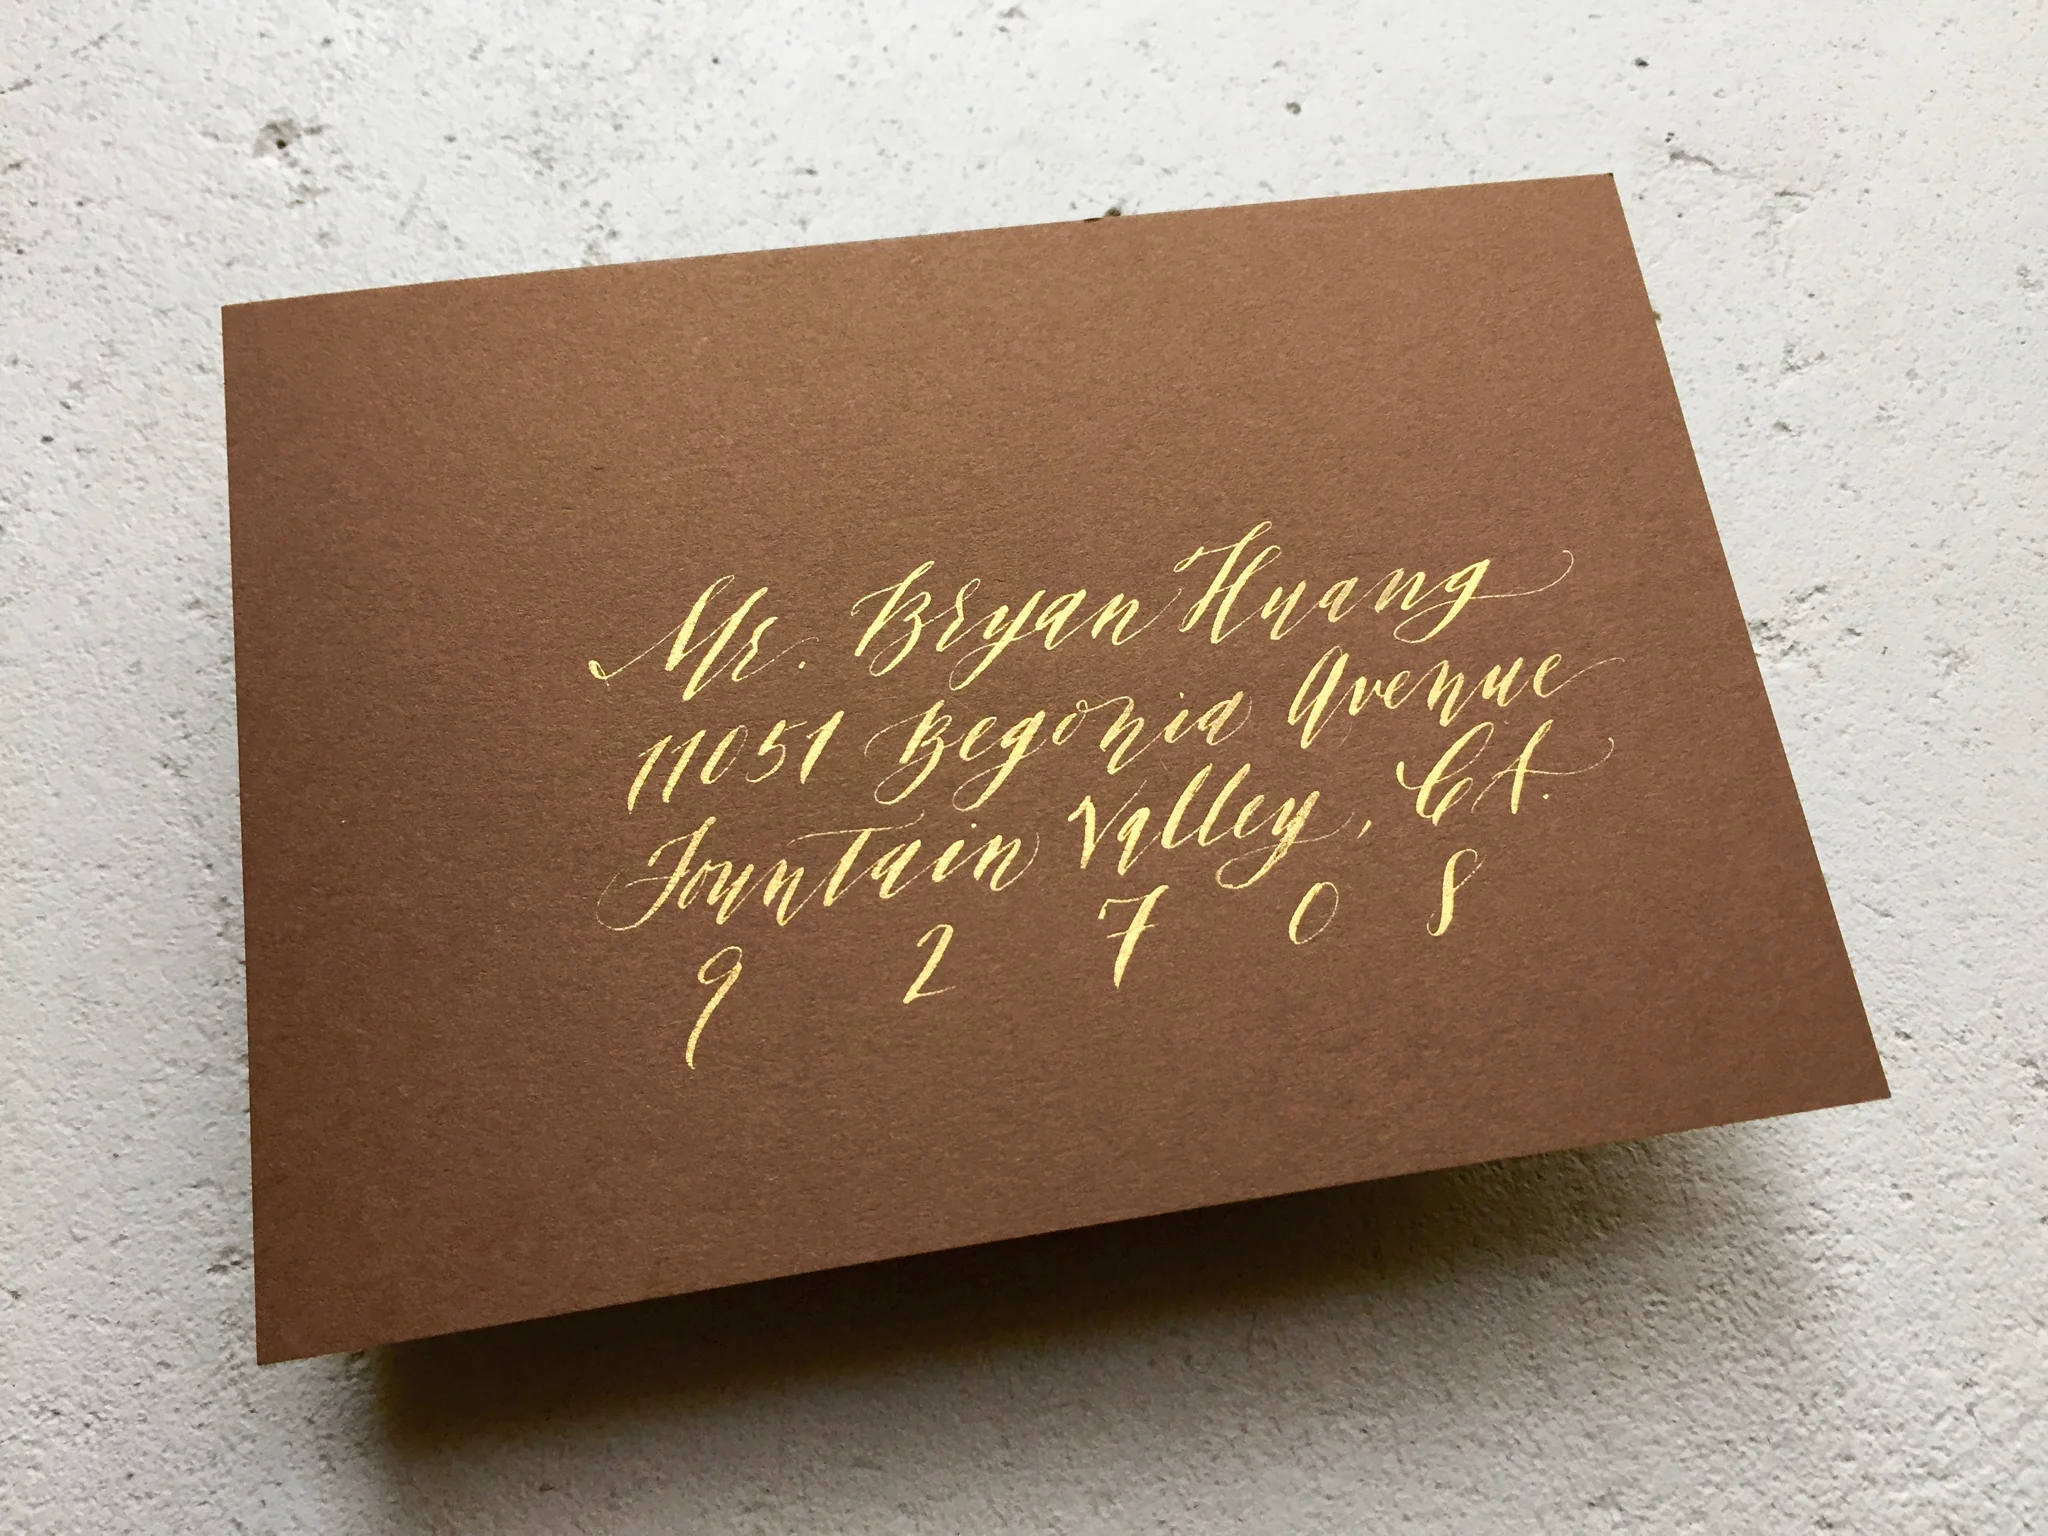 Mr. Bryan Huang
11051 Begonia Avenue
Fountain Valley, CA.
9 2 7 0 8